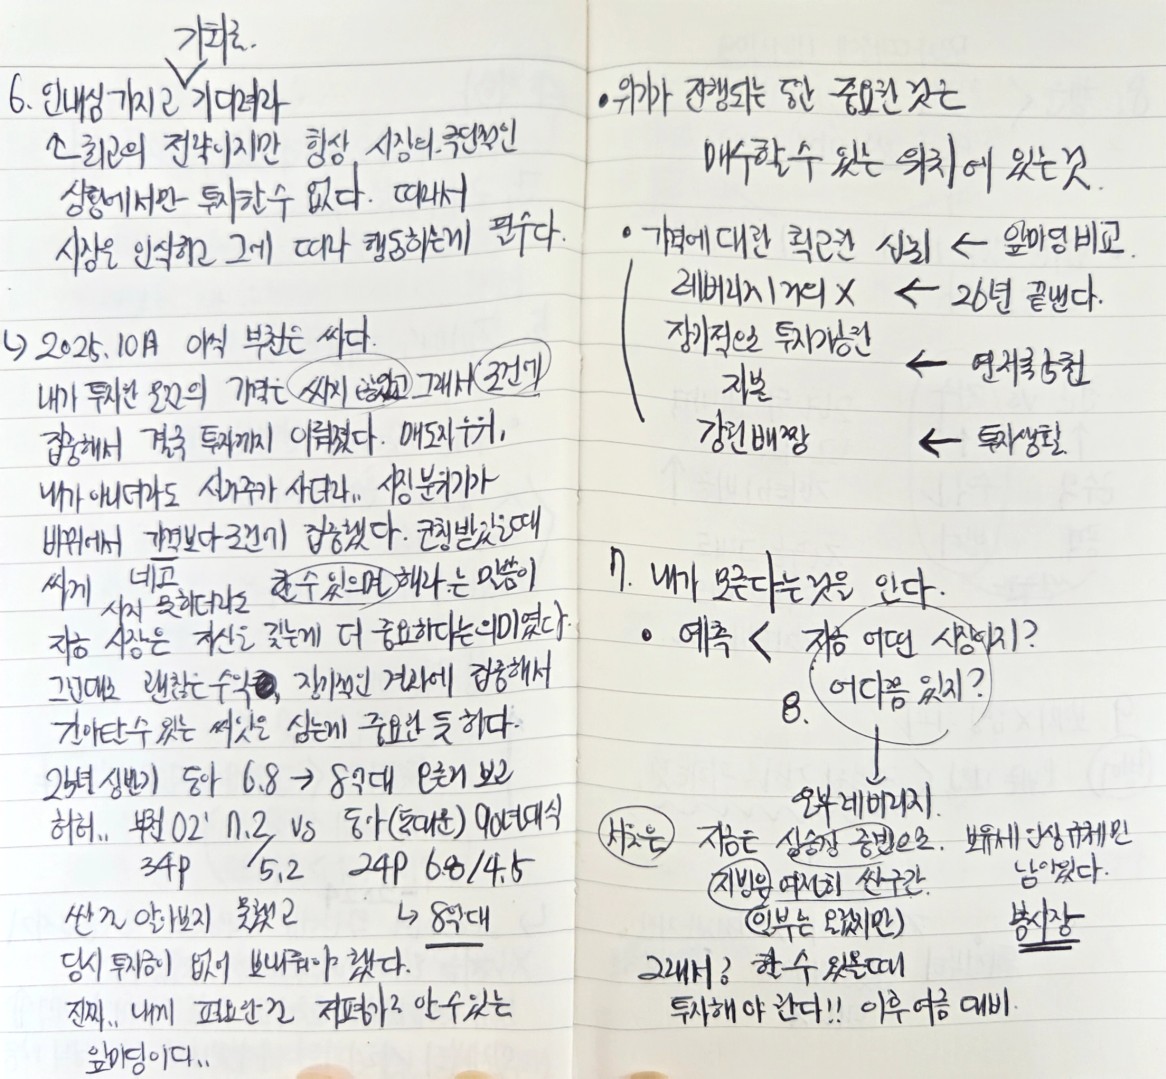 기회를.
6. 인내심 가지고 기다려라
최고의 전략이지만 항상 시장의 극단적인
상황에서만 투자할 수 없다. 따라서
시장을 인식하고 그에 따라 행동하는게 필수다.
↳ 2025.10月 아직 부천은 싸다.
내가 투자한 물건의 가격은 싸지 않았고 그래서 조건에
집중해서 결국 투자까지 이뤄졌다. 매도자우위,
내가 아니더라도 실거주가 사더라.. 시장 분위기가
바뀌어서 가격보다 조건에 집중했다. 코칭받았을때
싸게 네고
사지 못하더라도 할 수 있으면 해라 는 말씀이
지금 시장은 자산을 갖는게 더 중요하다는 의미였다.
그런대로 괜찮은 수익, 장기적인 결과에 집중해서
살아남을 수 있는 씨앗을 심는게 중요한 듯 하다.
25년 상반기 동아 6.8 → 8억대 오른거 보고
허허.. 부천 02' 7.2 vs 동아(동대문) 90년대식
34P / 5.2 24P 6.8/4.5
싼 건 알아보지 못했고 ↳ 8억대
당시 투자금이 없어 보내줘야 했다.
진짜.. 내게 필요한 건 저평가를 알 수 있는
앞마당이다..
• 위기가 진행되는 동안 중요한 것은
매수할 수 있는 위치에 있는 것.
• 가격에 대한 철저한 심리 ← 앞마당 비교.
레버리지 거의 X ← 26년 끝낸다.
장기적으로 투자가능한
자본 ←
강한 배짱 ← 투자생활.
7. 내가 모른다는 것을 안다.
• 예측 < 지금 어떤 시장이지?
8. 어디쯤 있지?
↓
오부 레버리지.
서울은 지금은 상승장 중반으로. 보유세 인상 규제만
지방은 여전히 싼구간. 남아있다.
(일부는 오렀지만) 불시장
그래서? 할 수 있을때
투자해야 한다!! 이후 여름 대비.